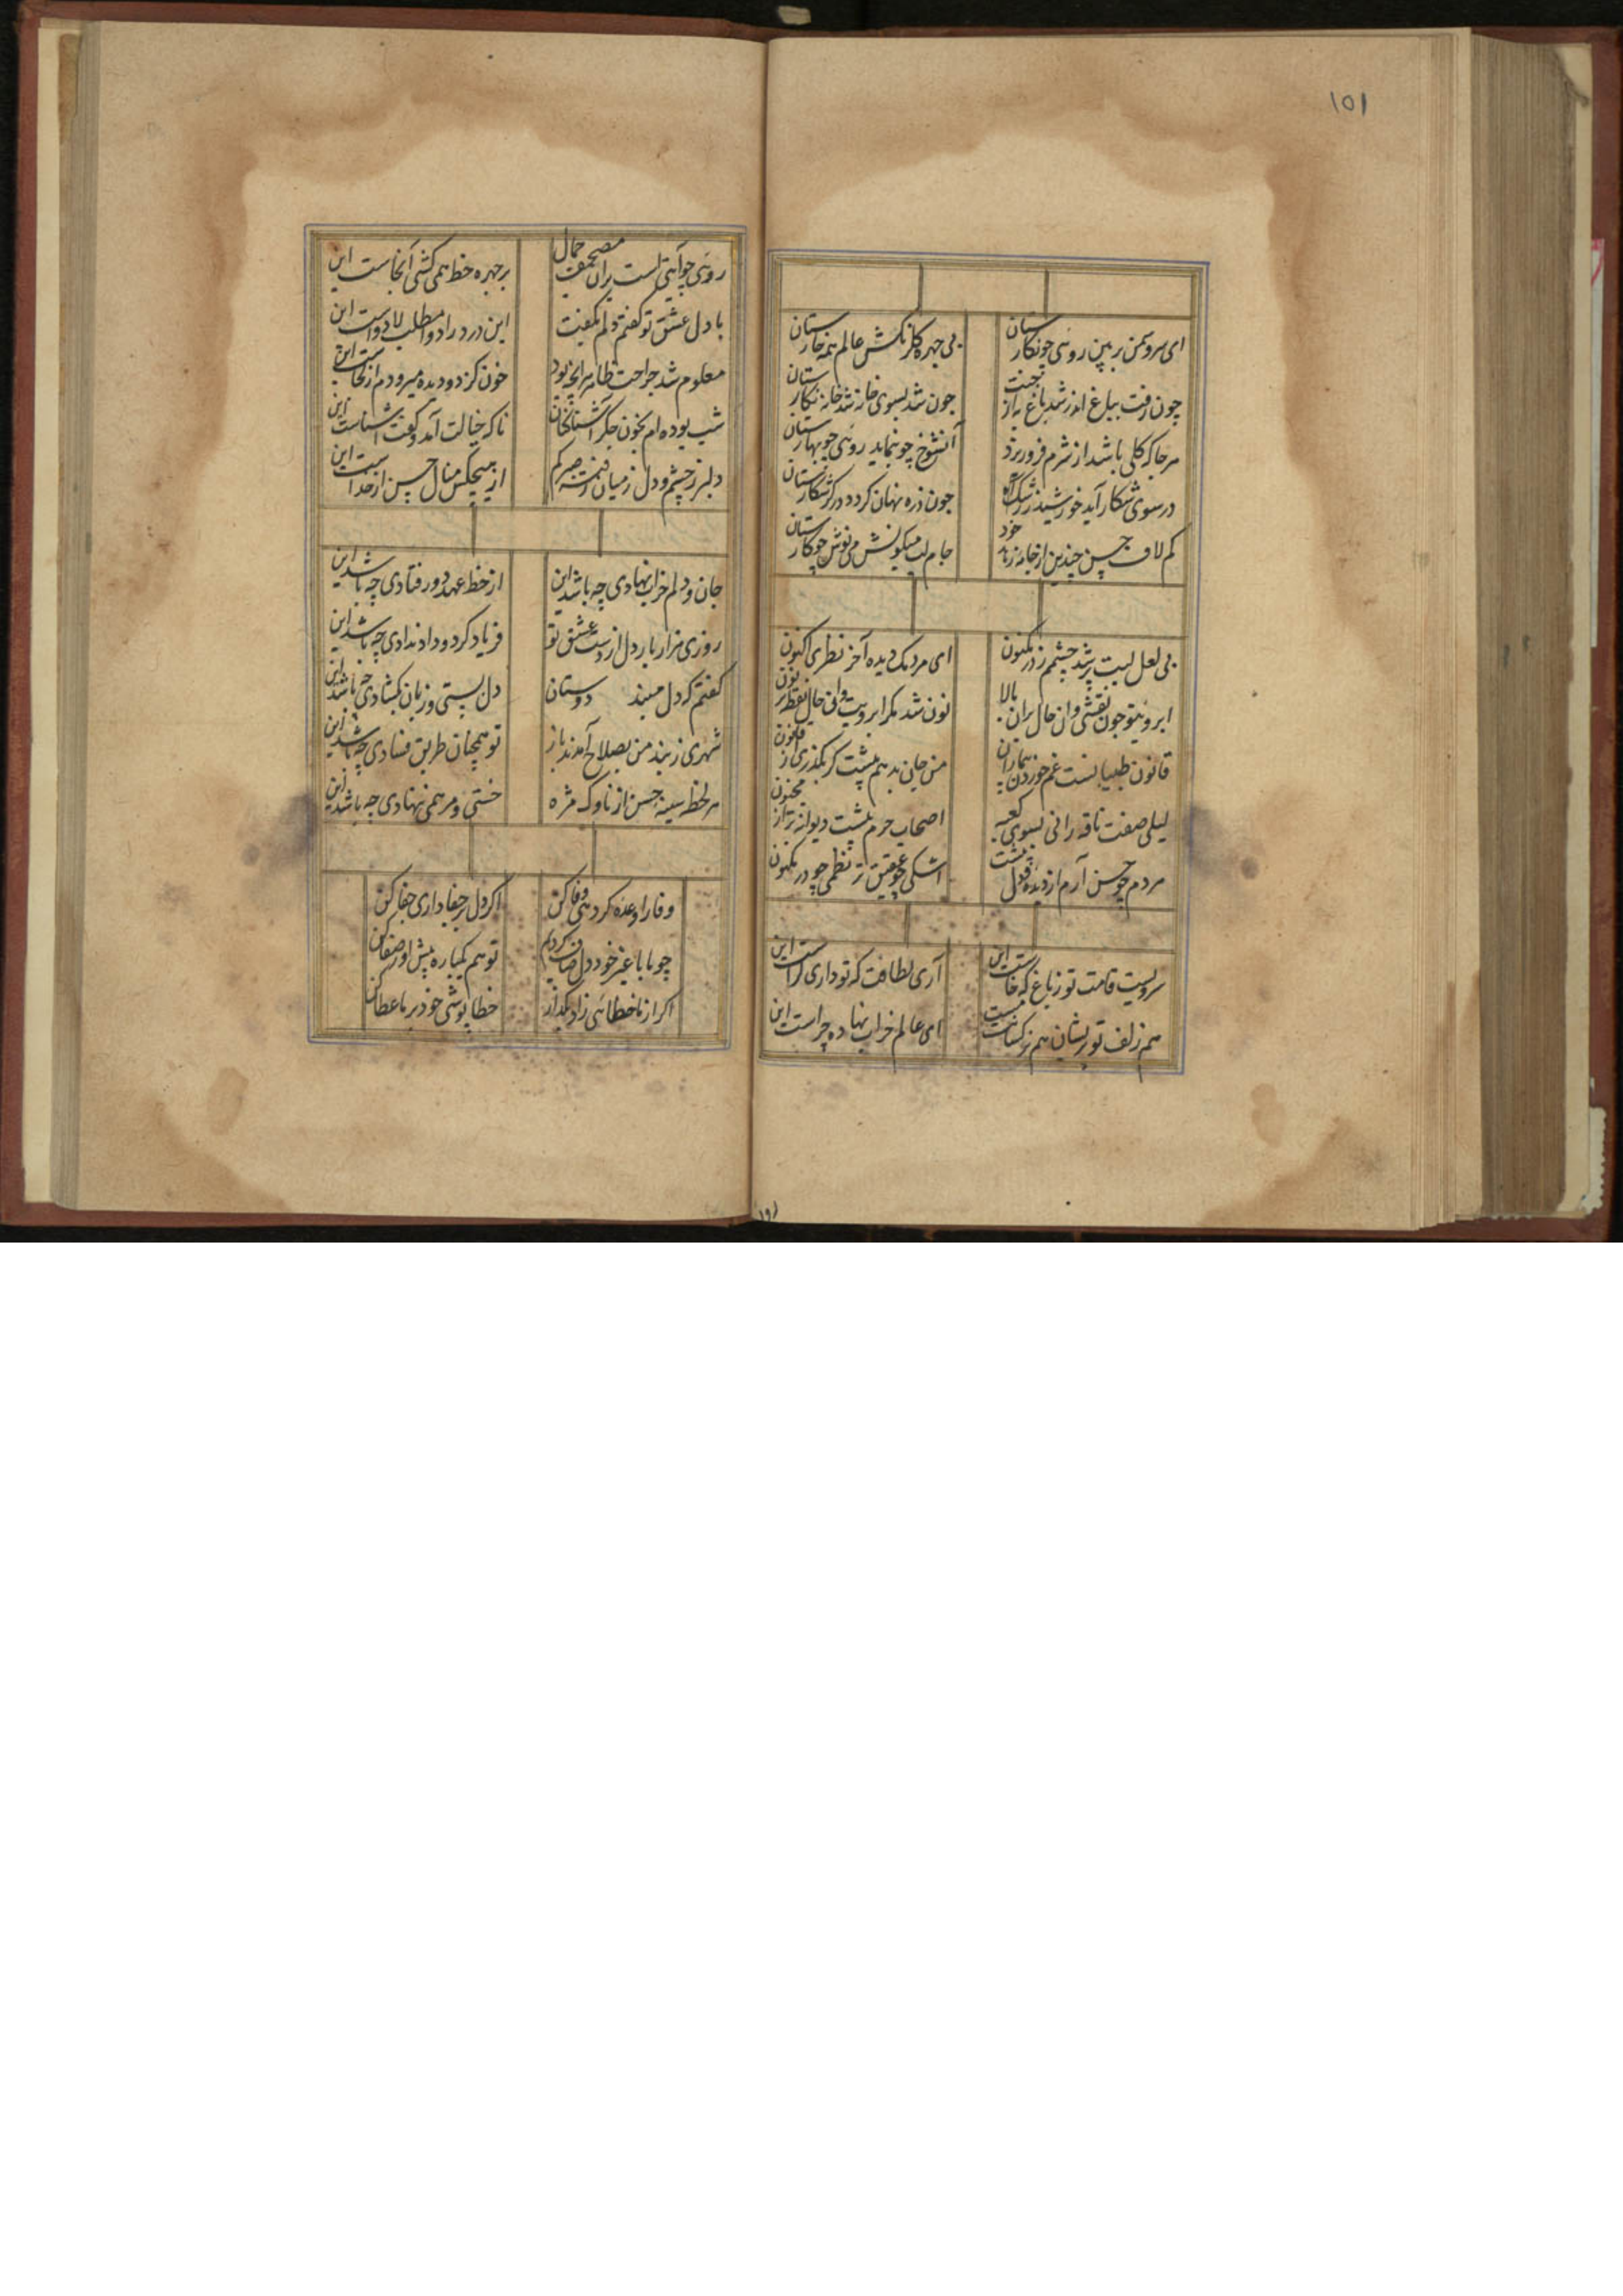 ۱۵۱
ای سرو سمن بر بین روئی چو نکارستان
بی چهره کلرنکش عالم همه خارستان
چون رفت بباغ اندر شد باغ به از جنت
چون شد بسوی خانه شد خانه نکارستان
هر جا که کلی باشد از شرم فرو ریزد
آنشوخ چو بنماید روئی چو بهارستان
در سوی شکار آید خورشید ز رشک
چون ذره نهان کردد در کرد شکارستان
کم لاف حسن چندین از جامه زهد خود
جام لب میکونش می نوش چو کارستان
بی لعل لبت پر شد چشمم ز در مکنون
ای مردمک دیده آخر نظری اکنون
ابروئیتو چون نقشی وان خال بران بالا
نون شد مکر ابرویت وانی خال نقطه بر نون
قانون طبیبانست غم خوردن بیماران
من جان بدهم پیشت کر بکذری از قانون
لیلی صفت ناقه رانی بسوی کعبه
اصحاب حرم پیشت دیوانه تر از مجنون
مردم چو حسن آرم از دیده و دل پیشت
اشکی چو عقیق تر نظمی چو در مکنون
سرویست قامت تو ز باغ که خاست این
آری لطافت که تو داری کراست این
هم زلف تو پریشان هم نرکست مست
ای عالم خراب نهاده چراست این
روئی چو آیتی است بران مصحف جمال
بر چهره خط همی کشی آنجاست این
با دل عشق تو کفتم دلم بکفت
این درد را دوا مطلب لا دواست این
معلوم شد جراحت ظاهر هر آنچه بود
خون کز دو دیده میرودم از کجاست این
شب بوده ام بخون جکر آشنا کنان
ناکه خیالت آمد و کفت آشناست این
دلبر ز چشم و دل ز میان رفت صبر کم
از هیچکس منال حسن از خداست این
جان و دلم خراب نهادی چه باشد این
از خط عهد دور فتادی چه باشد این
روزی هزار بار دل از دست عشق تو
فریاد کرد و داد ندادی چه باشد این
کفتم که دل مبند دوستان
دل بستی و زبان بکشادی چه باشد این
شهری ز پند من بصلاح آمدند باز
تو همچنان طریق فسادی چه باشد این
هر لحظه سینه حسن از ناوک مژه
خستی و مرهمی ننهادی چه باشد این
وفا را وعده کردهئی وفا کن
اکر دل بر جفا داری جفا کن
چو ما با غیر خود دل صاف کردیم
تو هم یکباره پیش او صفا کن
اکر از ما خطائی زاد بکذار
خطا پوشی خود بر ما عطا کن